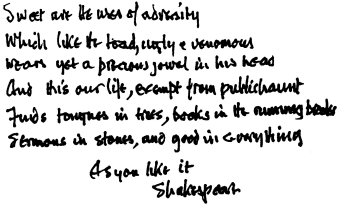 Sweet are the uses of adversity
Which like the toad, ugly & venomous
Wears yet a precious jewel in his head
And this our life, exempt from public haunt
Finds tongues in trees, books in the running brooks
Sermons in stones, and good in everything
As you like it
Shakespeare